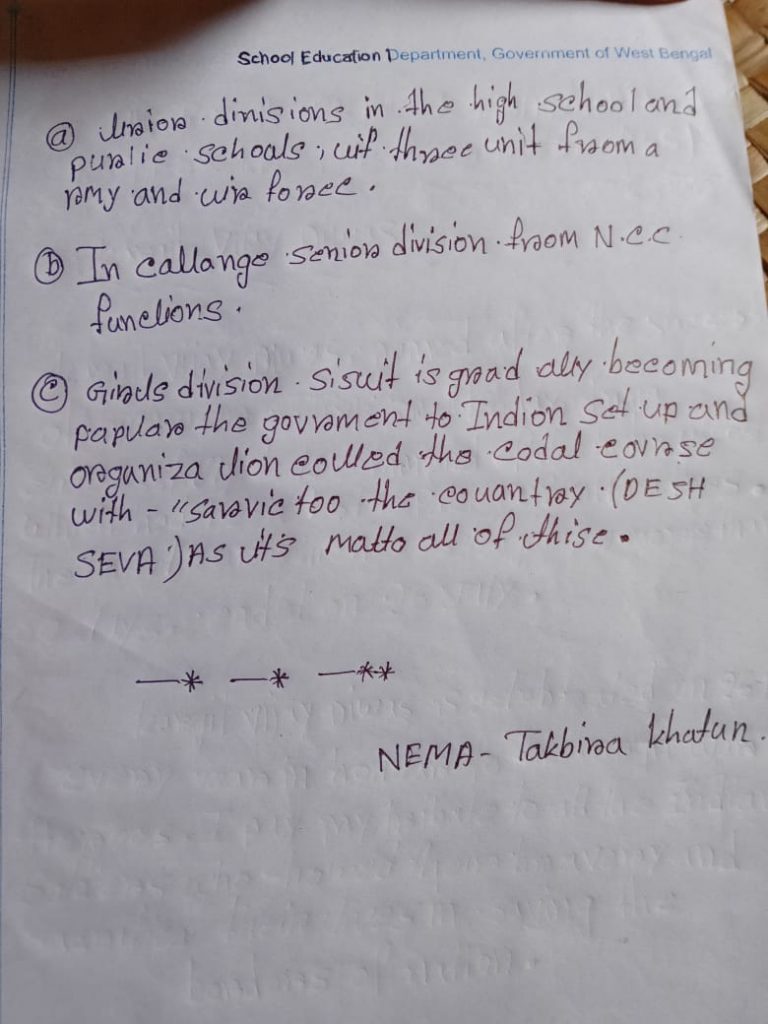 School Education Department, Government of West Bengal
ⓐ Union dinisions in the high school and
puralie schoals, wit three unit from a
rmy and wir foree.
ⓑ In callange senior division from N.C.C
funelions.
ⓒ Girls division. Siswit is graad ally becoming
papular the govrament to Indion Set up and
oreganiza tion coulled the codal covrse
with - "saravic too the couantray. (DESH
SEVA") As it's matto all of thise.
—* —* —**
NEMA- Takbira Khatun.